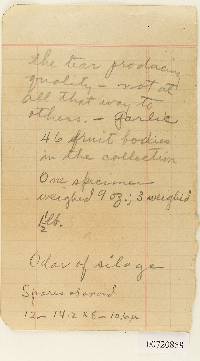 the tear producing
quality — not at
all that way to
others. — garlic
46 fruit bodies
in the collection
One specimen
weighed 9 oz.; 3 weighed
1/2 lb.
Odor of silage
Spores obovoid
12 – 14.2 x 8 – 10.6 µ